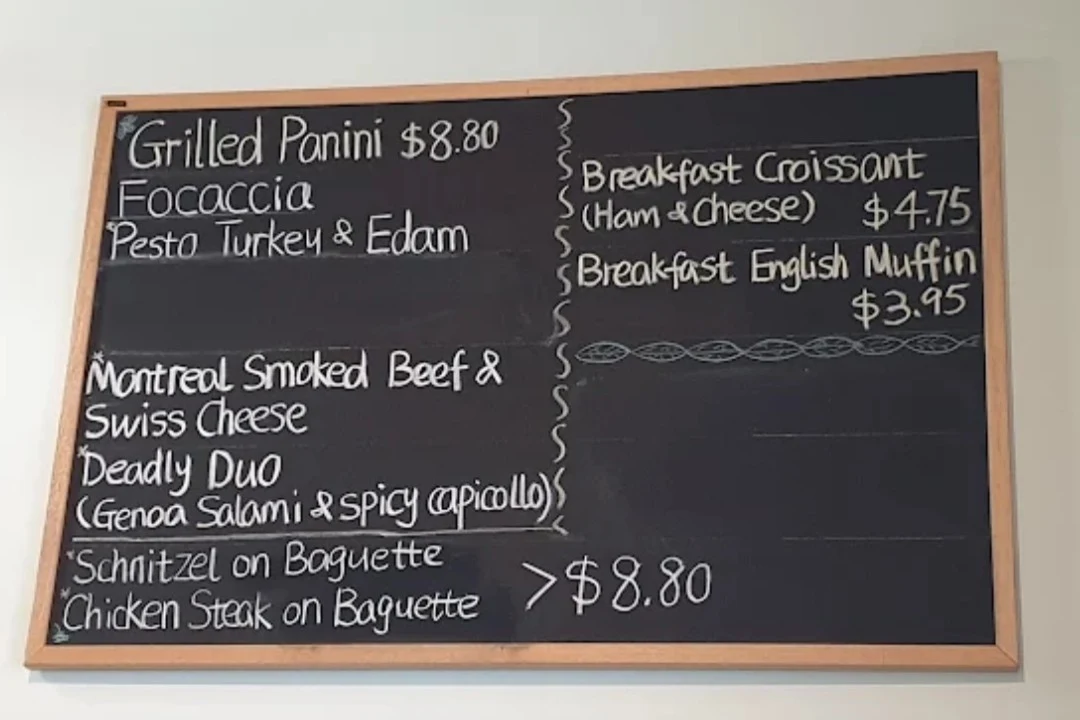 *Grilled Panini $8.80
Focaccia
*Pesto Turkey & Edam
*Montreal Smoked Beef &
Swiss Cheese
*Deadly Duo
(Genoa Salami & spicy capicollo)
*Schnitzel on Baguette
*Chicken Steak on Baguette
>$8.80
Breakfast Croissant
(Ham & Cheese) $4.75
Breakfast English Muffin
$3.95